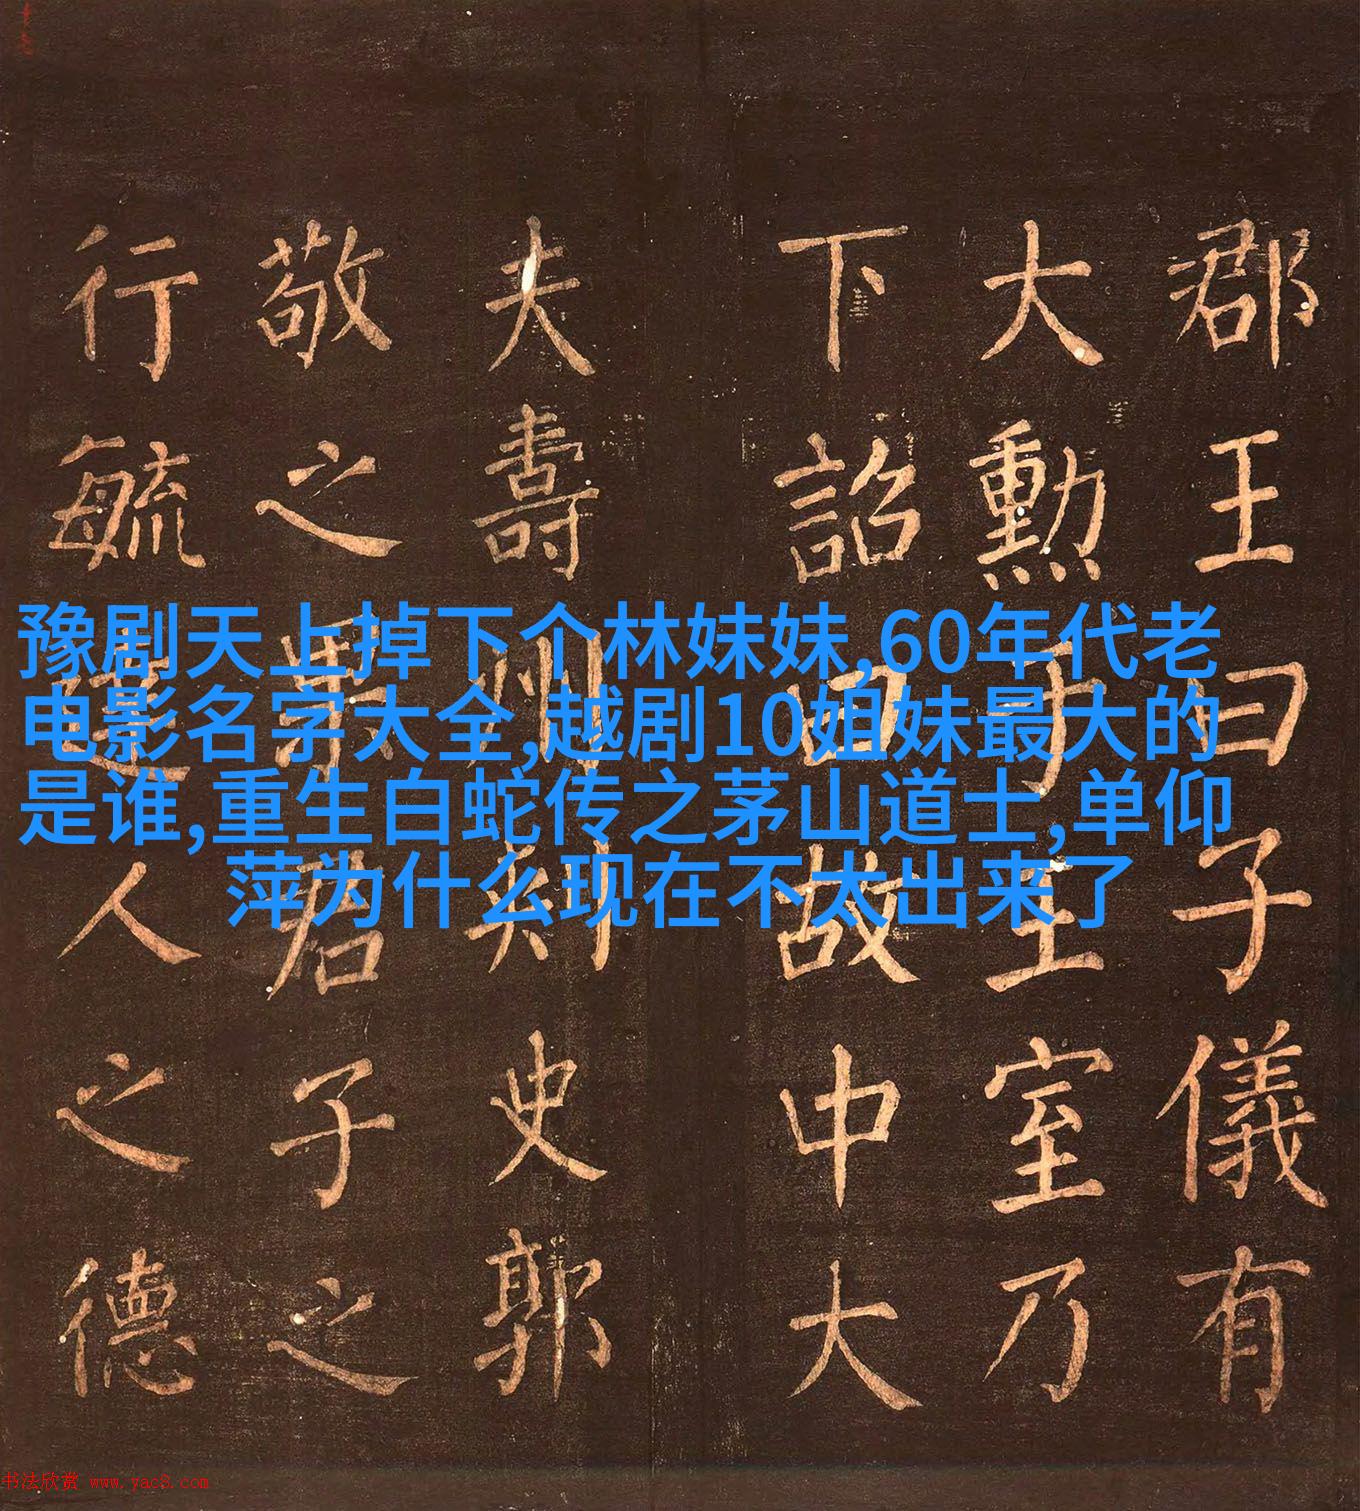 豫剧天上掉下个林妹妹,60年代老
电影名字大全,越剧10姐妹最大的
是谁,重生白蛇传之茅山道士,单仰
萍为什么现在不太出来了
郡王曰子儀有
大勳于王室乃
下詔曰故中大
夫壽州刺史郭
敬之君子之
行毓人之德
书法欣赏 www.yac8.com